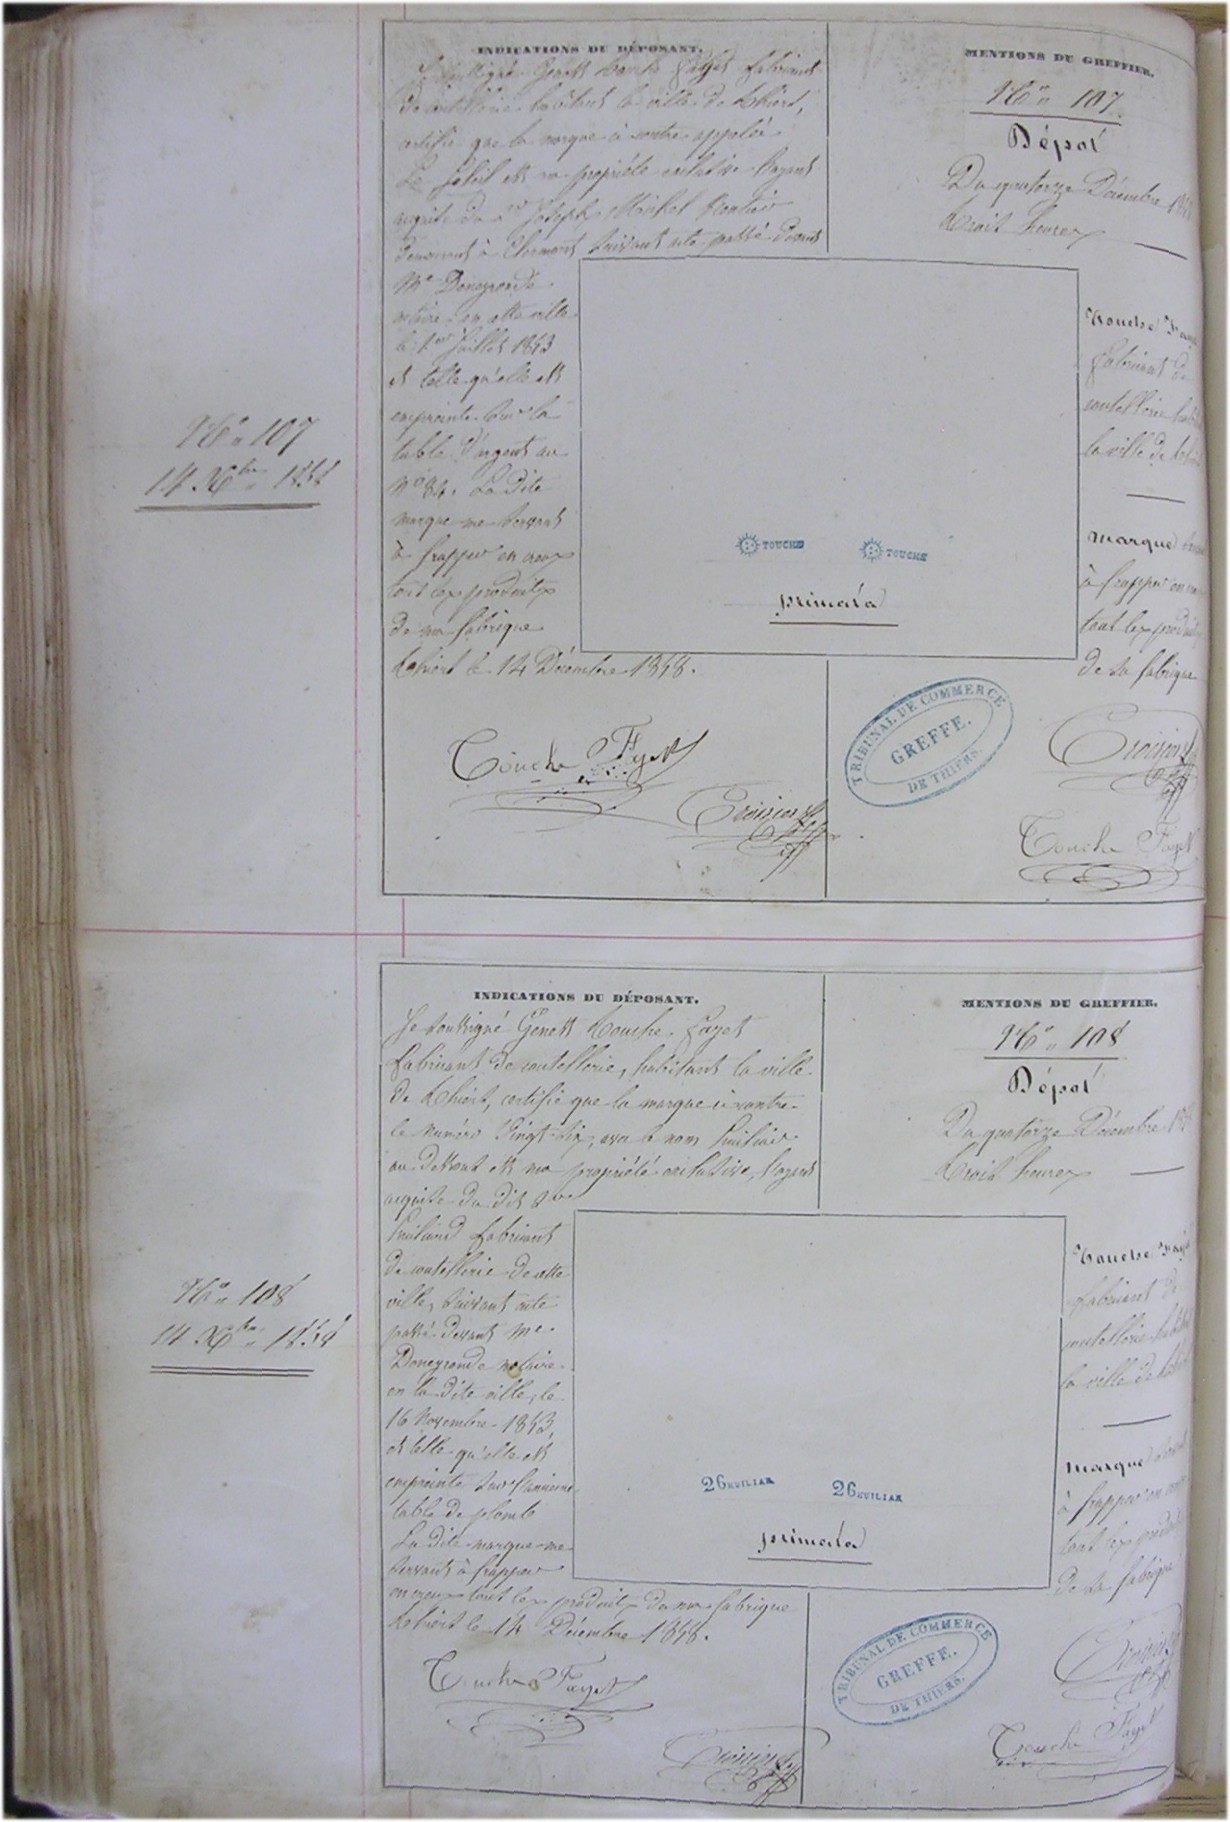 INDICATIONS DU DÉPOSANT.
Je soussigné Genest Touche Fayet fabricant
de coutellerie habitant la ville de Thiers,
certifie que la marque ci contre appelée
Le Soleil est ma propriété exclusive l'ayant
acquise du Sr Joseph Michel
demeurant à Clermont suivant acte passé devant
Me
notaire en cette ville
le 1er Juillet 1853
et telle qu'elle est
empreinte sur la
table d'argent au
No 84. La dite
marque me servant
à frapper en creux
tout les produits
de ma fabrique
Thiers le 14 Décembre 1858.
Touche Fayet
MENTIONS DU GREFFIER.
No 107
Dépôt
Du quatorze Décembre 1858
trois heures
Touche Fayet
fabricant de
coutellerie
la ville de Thiers
marque
à frapper en
tout les produits
de sa fabrique
No 107
14 Xbre 1858
TOUCHE TOUCHE
primata
TRIBUNAL DE COMMERCE
GREFFE.
DE THIERS.
Touche Fayet
INDICATIONS DU DÉPOSANT.
Je soussigné Genest Touche Fayet
fabricant de coutellerie, habitant la ville
de Thiers, certifie que la marque ci contre
le numéro Vingt six, avec le nom Huiliar
au dessous est ma propriété exclusive, l'ayant
acquise du dit Sr
fabricant
de coutellerie de cette
ville, suivant acte
passé devant Me
notaire
en la dite ville, le
16 Novembre 1853,
et telle qu'elle est
empreinte sur l'ancienne
table de plomb
La dite marque me
servant à frapper
en creux tout les produits de ma fabrique
Thiers le 14 Décembre 1858.
Touche Fayet
MENTIONS DU GREFFIER.
No 108
Dépôt
Du quatorze Décembre 1858
trois heures
Touche Fayet
fabricant de
coutellerie
la ville de Thiers
marque
à frapper en
tout les produits
de sa fabrique
No 108
14 Xbre 1858
26 HUILIAR 26 HUILIAR
primata
TRIBUNAL DE COMMERCE
GREFFE.
DE THIERS.
Touche Fayet